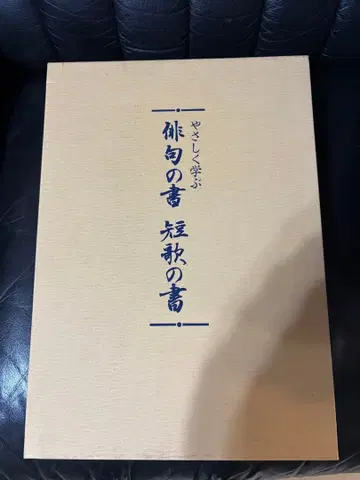 やさしく学ぶ
俳句の書 短歌の書